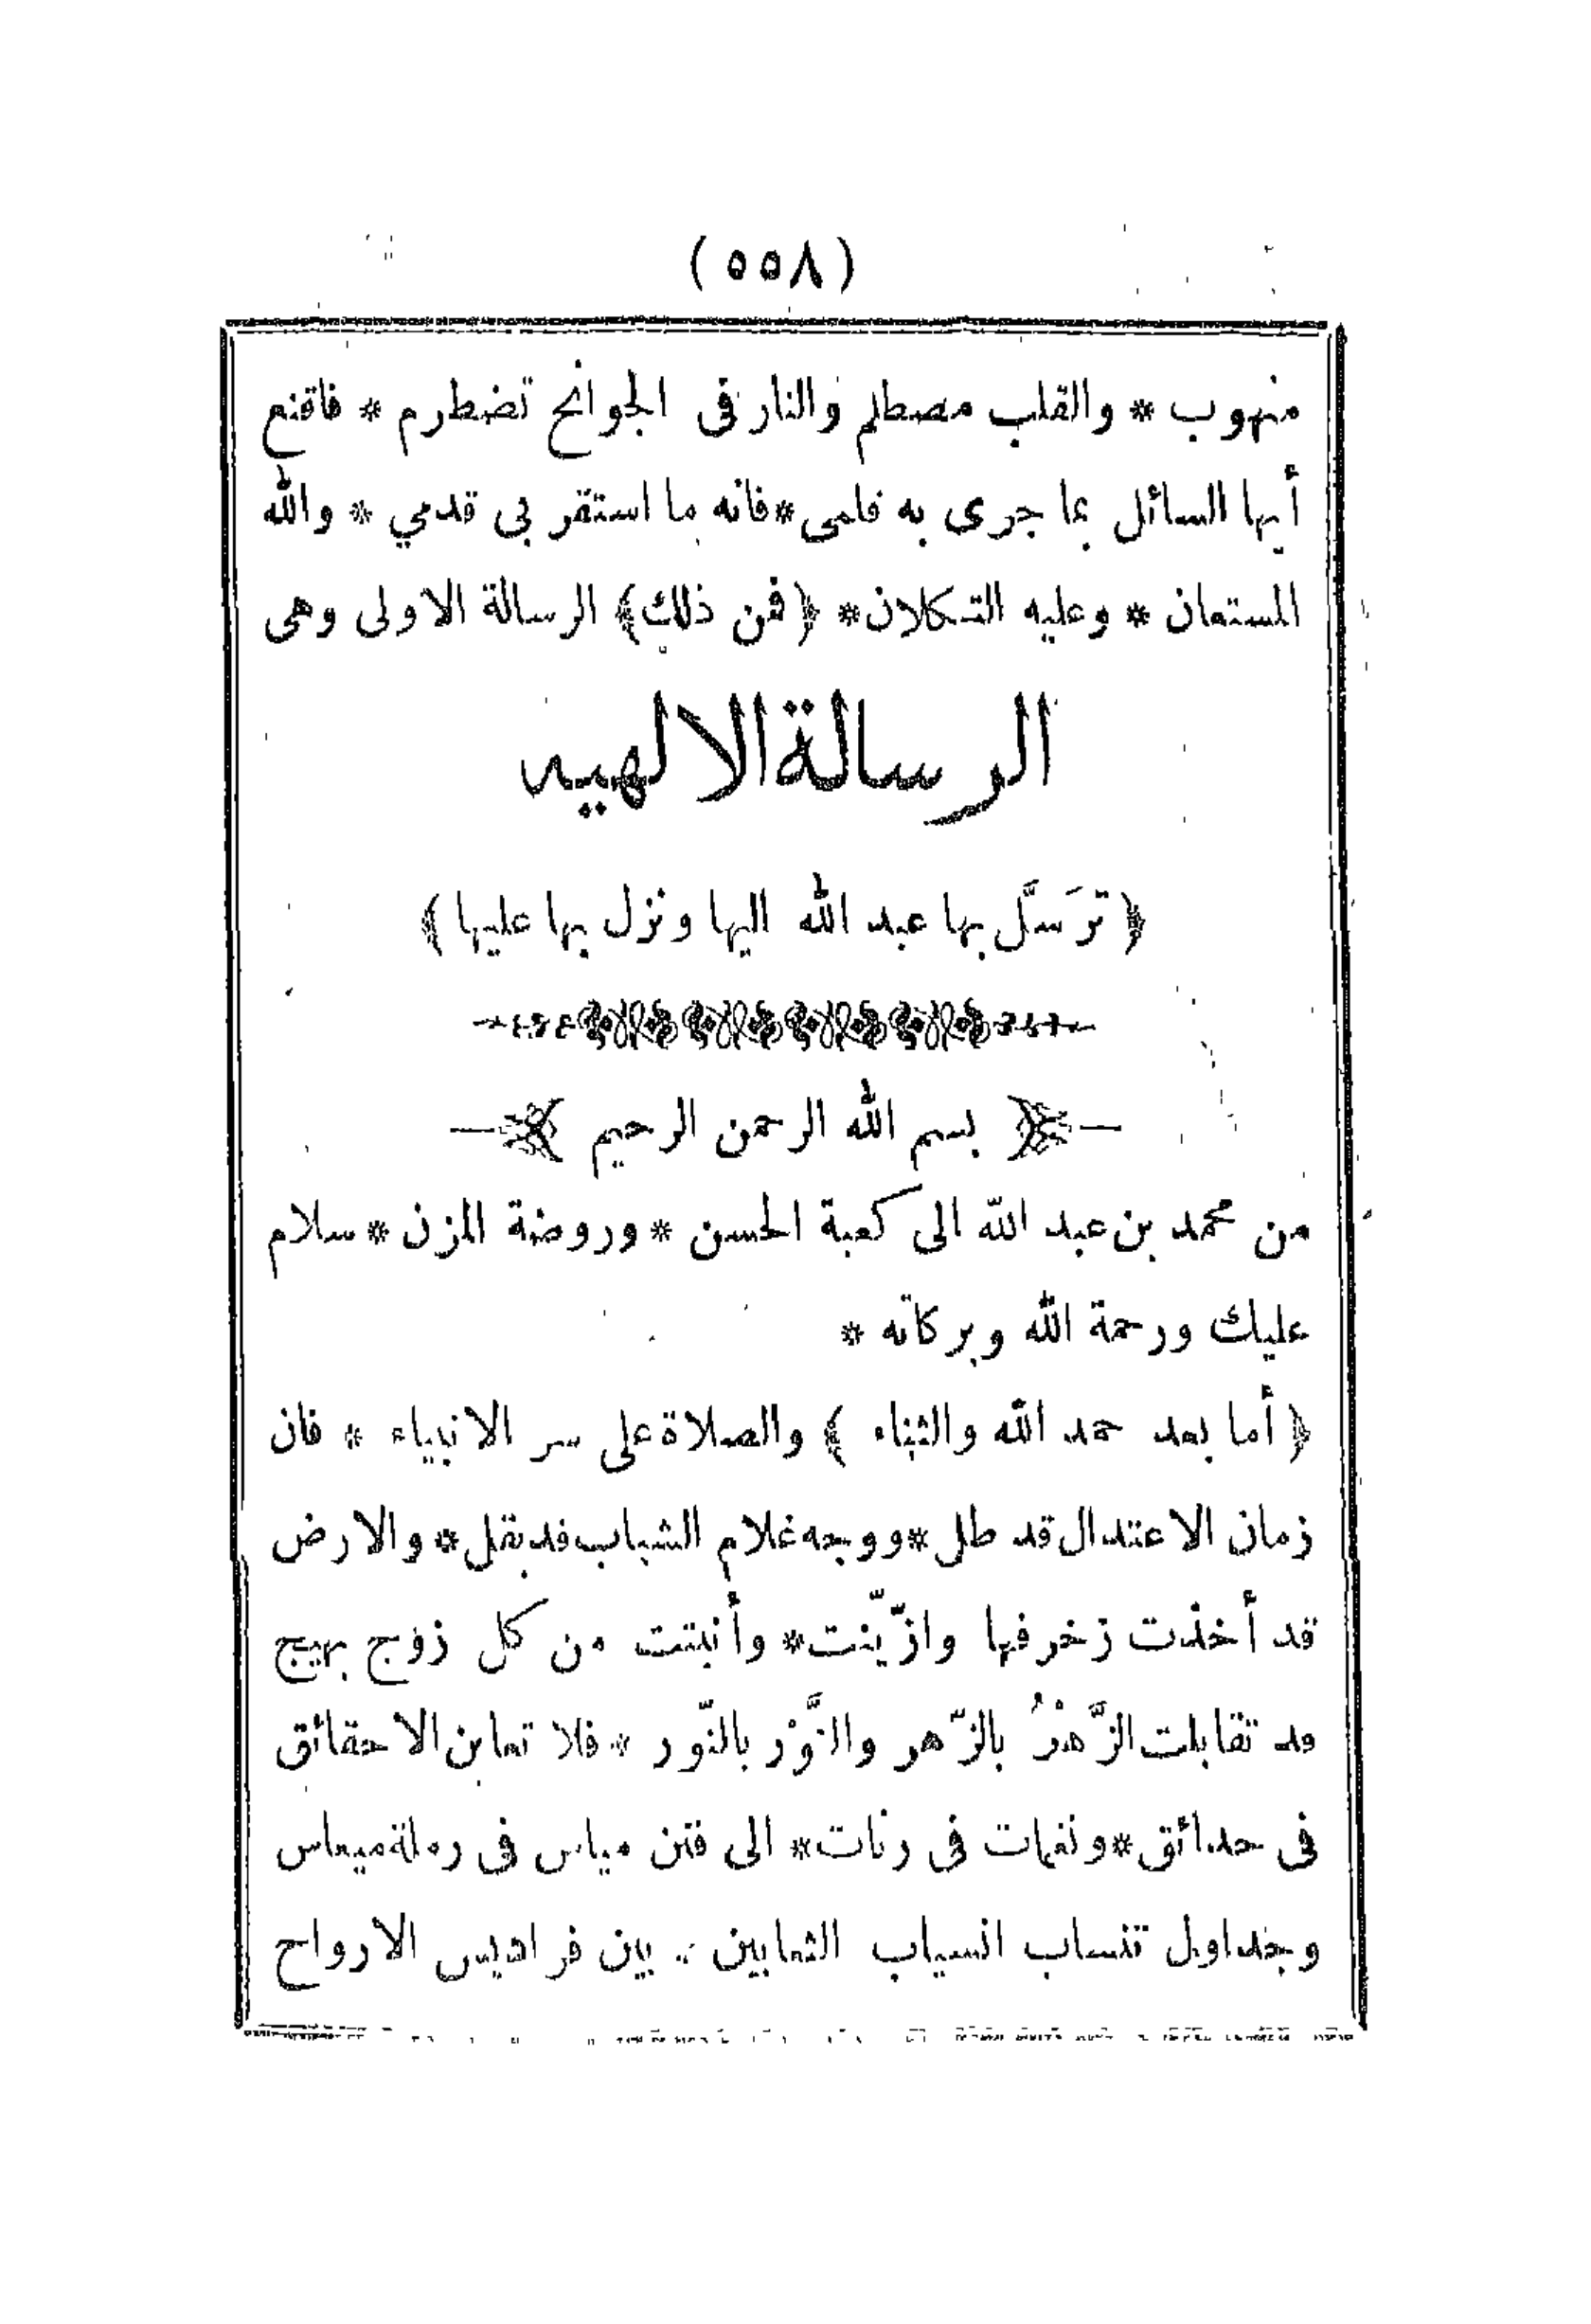 (٥٥٨)
منهوب * والقلب مصطلم والنار فى الجوانح تضطرم * فاقنع
أيها السائل بما جرى به قلمى * فانه ما استقر بى قدمي * والله
المستعان * وعليه التكلان * ﴿فمن ذلك﴾ الرسالة الاولى وهى
الرسالة الالهيه
﴿ ترَسَّل بها عبد الله اليها ونزل بها عليها ﴾
﴿ بسم الله الرحمن الرحيم ﴾
من محمد بن عبد الله الى كعبة الحسن * وروضة المزن * سلام
عليك ورحمة الله وبركاته *
﴿ أما بعد حمد الله والثناء ﴾ والصلاة على سر الانبياء * فان
زمان الاعتدال قد طل * ووجه غلام الشباب قد بقل * والارض
قد أخذت زخرفها وازّيّنت * وأنبتت من كل زوج بهيج
قد تقابلت الزَّهْرُ بالزّهر والنَّوْر بالنّور * فلا تعاين الا حقائق
فى حدائق * ونغمات فى رنات * الى فتن مياس فى رملة ميعاس
وجداول تنساب انسياب الثعابين * بين فراديس الارواح